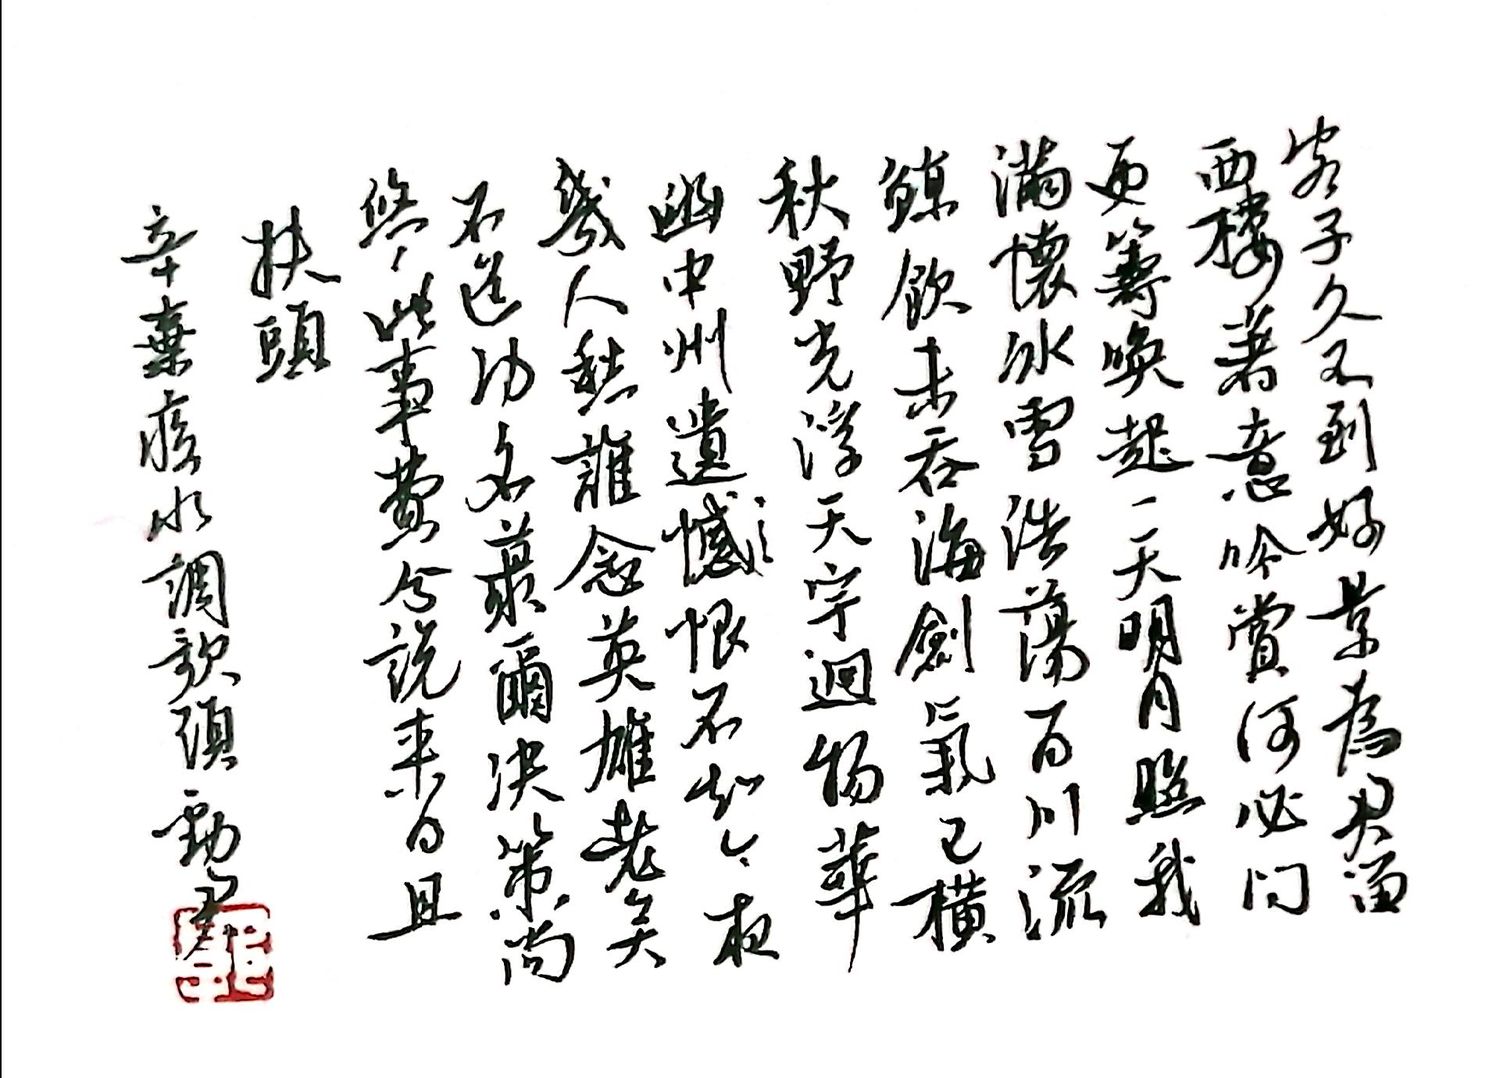 客子久不到好景為君留
西樓著意吟賞何必問
更籌喚起一天明月照我
滿懷冰雪浩蕩百川流
鯨飲未吞海劍氣已橫
秋野光浮天宇逈物華
幽中州遺憾恨不知今夜
幾人愁誰念英雄老矣
不道功名蕞爾決策尚
悠々此事費分說來日且
扶頭
辛棄疾水調歌頭 勁